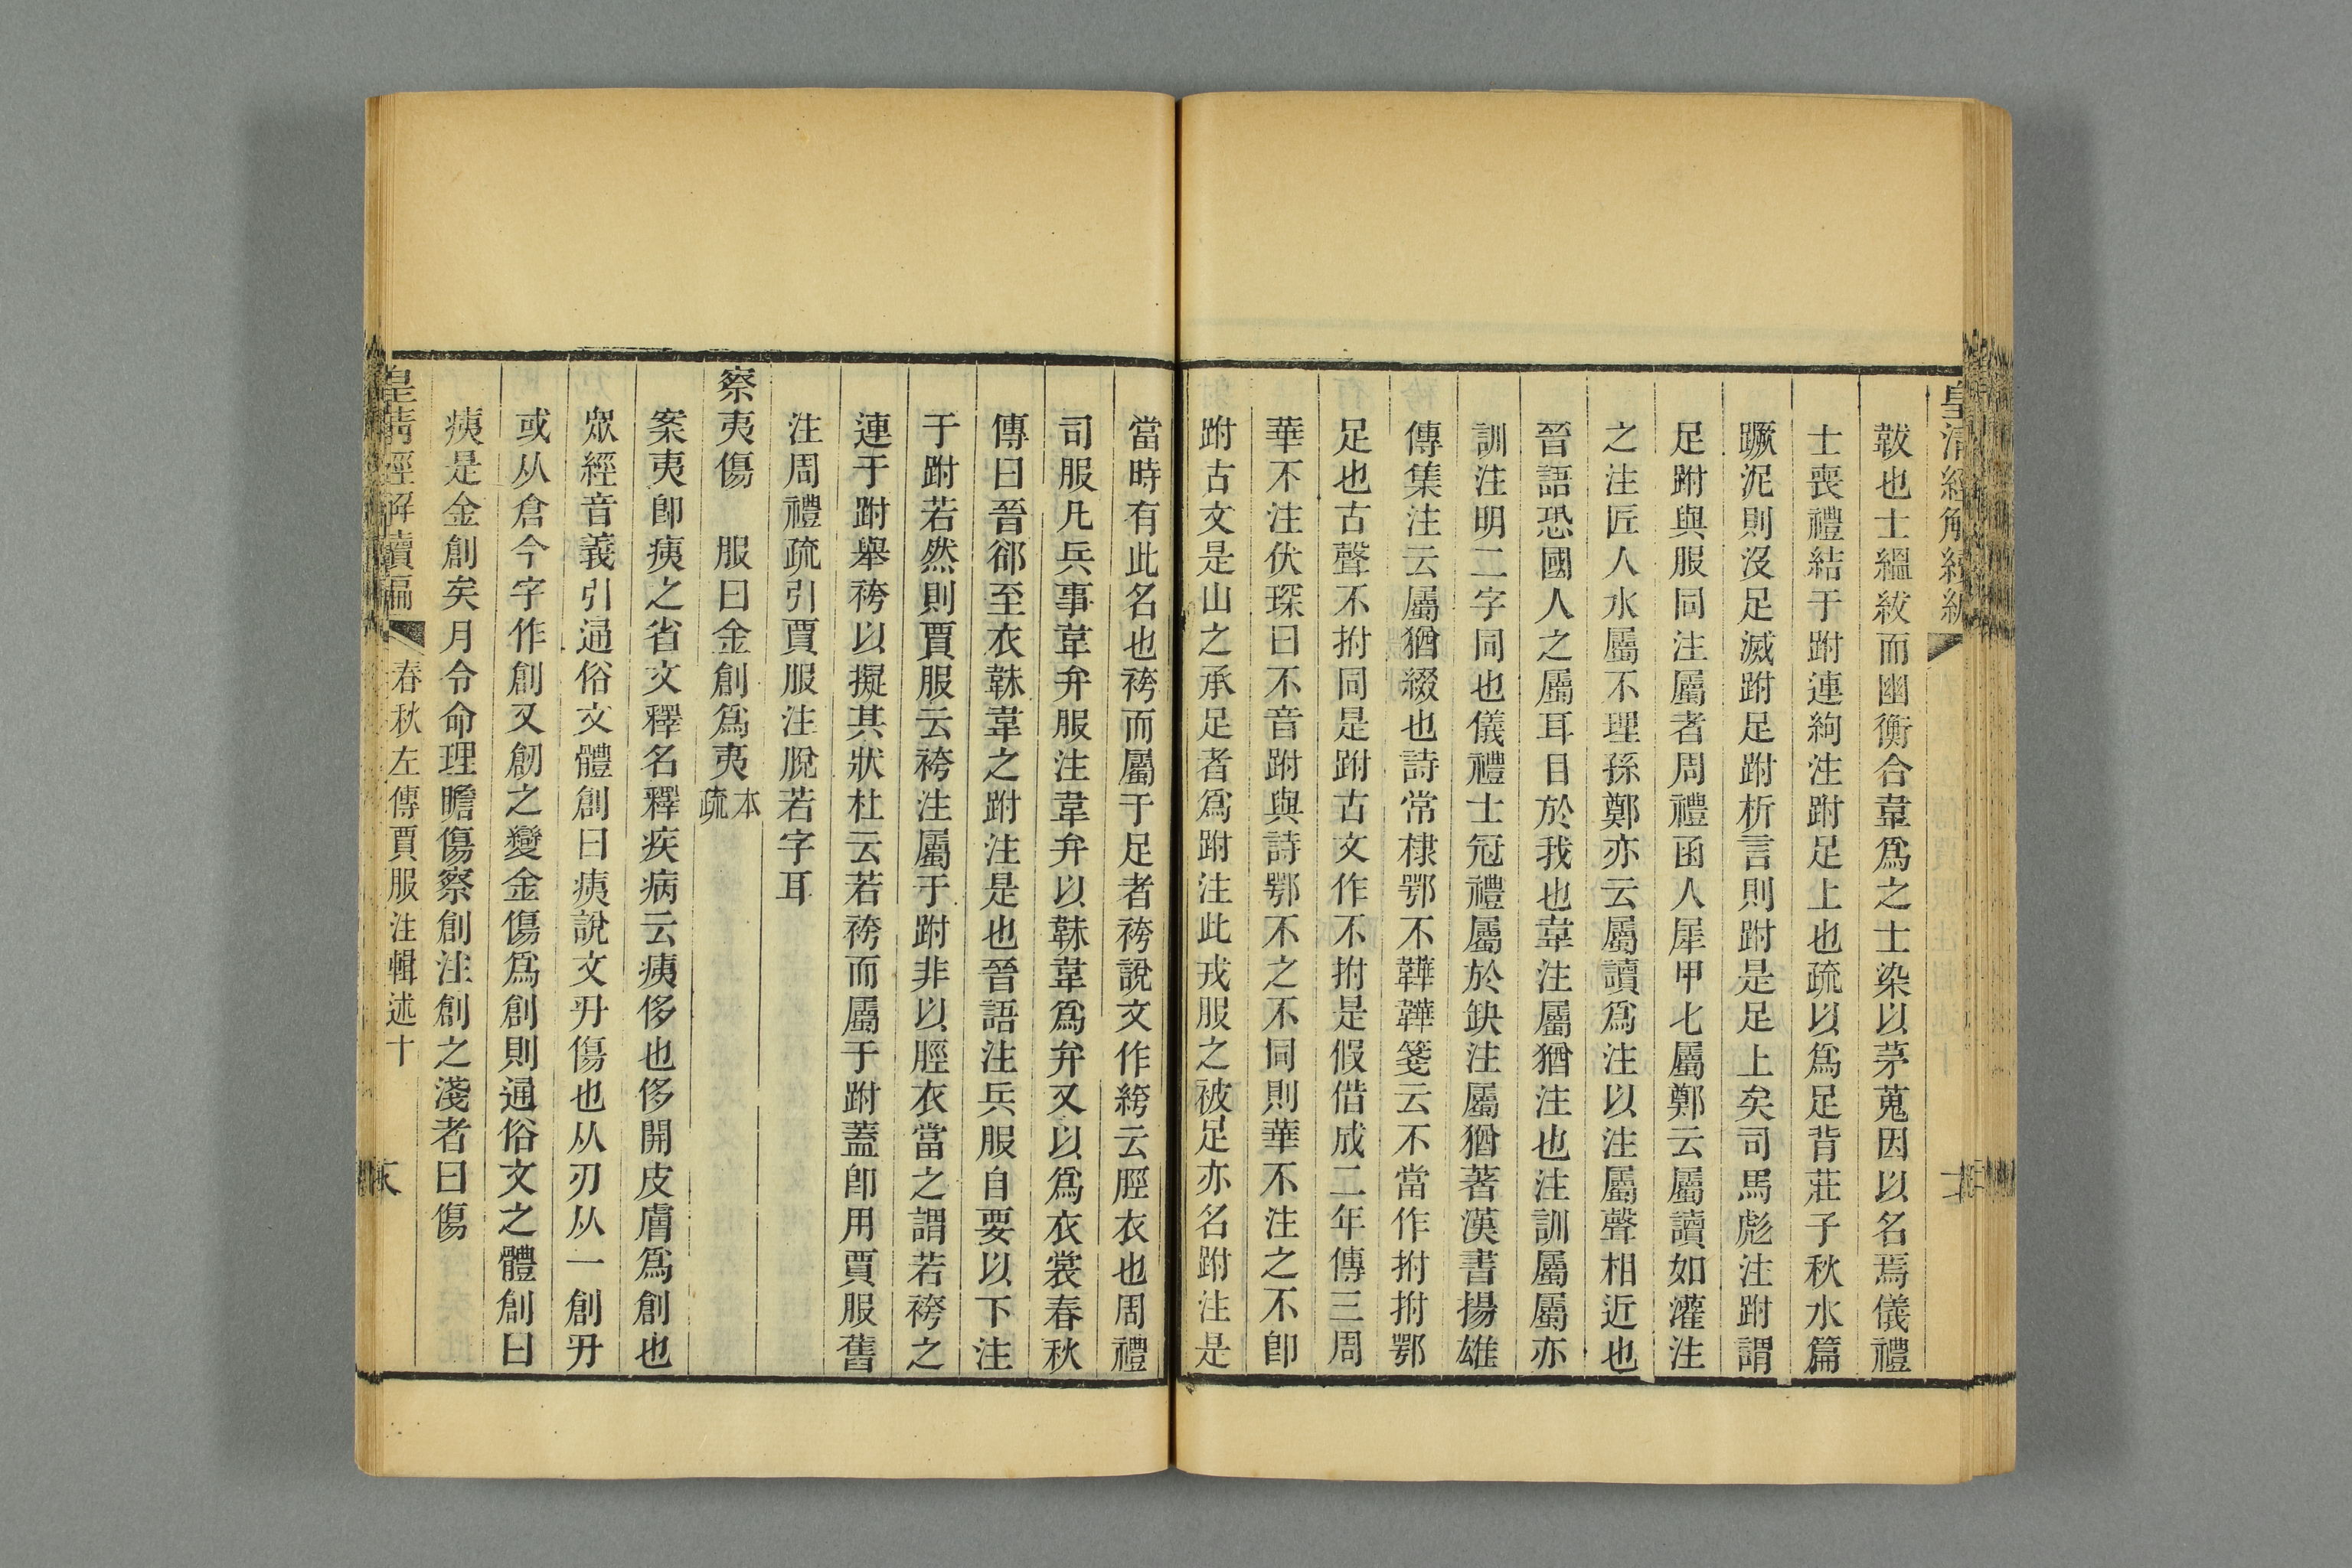 皇清經解續編
韍也士縕紱而幽衡合韋爲之士染以茅蒐因以名焉儀禮
士喪禮結于跗連絇注跗足上也疏以爲足背莊子秋水篇
蹶泥則沒足滅跗足跗析言則跗是足上矣司馬彪注跗謂
足跗與服同注屬者周禮函人犀甲七屬鄭云屬讀如灌注
之注匠人水屬不理孫鄭亦云屬讀爲注以注屬聲相近也
晉語恐國人之屬耳目於我也韋注屬猶注也注訓屬屬亦
訓注明二字同也儀禮士冠禮屬於缺注屬猶著漢書揚雄
傳集注云屬猶綴也詩常棣鄂不韡韡箋云不當作拊拊鄂
足也古聲不拊同是跗古文作不拊是假借成二年傳三周
華不注伏琛曰不音跗與詩鄂不之不同則華不注之不卽
跗古文是山之承足者爲跗注此戎服之被足亦名跗注是
當時有此名也袴而屬于足者袴說文作絝云脛衣也周禮
司服凡兵事韋弁服注韋弁以韎韋爲弁又以爲衣裳春秋
傳曰晉郤至衣韎韋之跗注是也晉語注兵服自要以下注
于跗若然則賈服云袴注屬于跗非以脛衣當之謂若袴之
連于跗舉袴以擬其狀杜云若袴而屬于跗蓋卽用賈服舊
注周禮疏引賈服注脫若字耳
察夷傷　服曰金創爲夷本疏
案夷卽痍之省文釋名釋疾病云痍侈也侈開皮膚爲創也
眾經音義引通俗文體創曰痍說文刅傷也从刃从一創刅
或从倉今字作創又剏之變金傷爲創則通俗文之體創曰
痍是金創矣月令命理瞻傷察創注創之淺者曰傷
皇清經解續編　春秋左傳賈服注輯述十